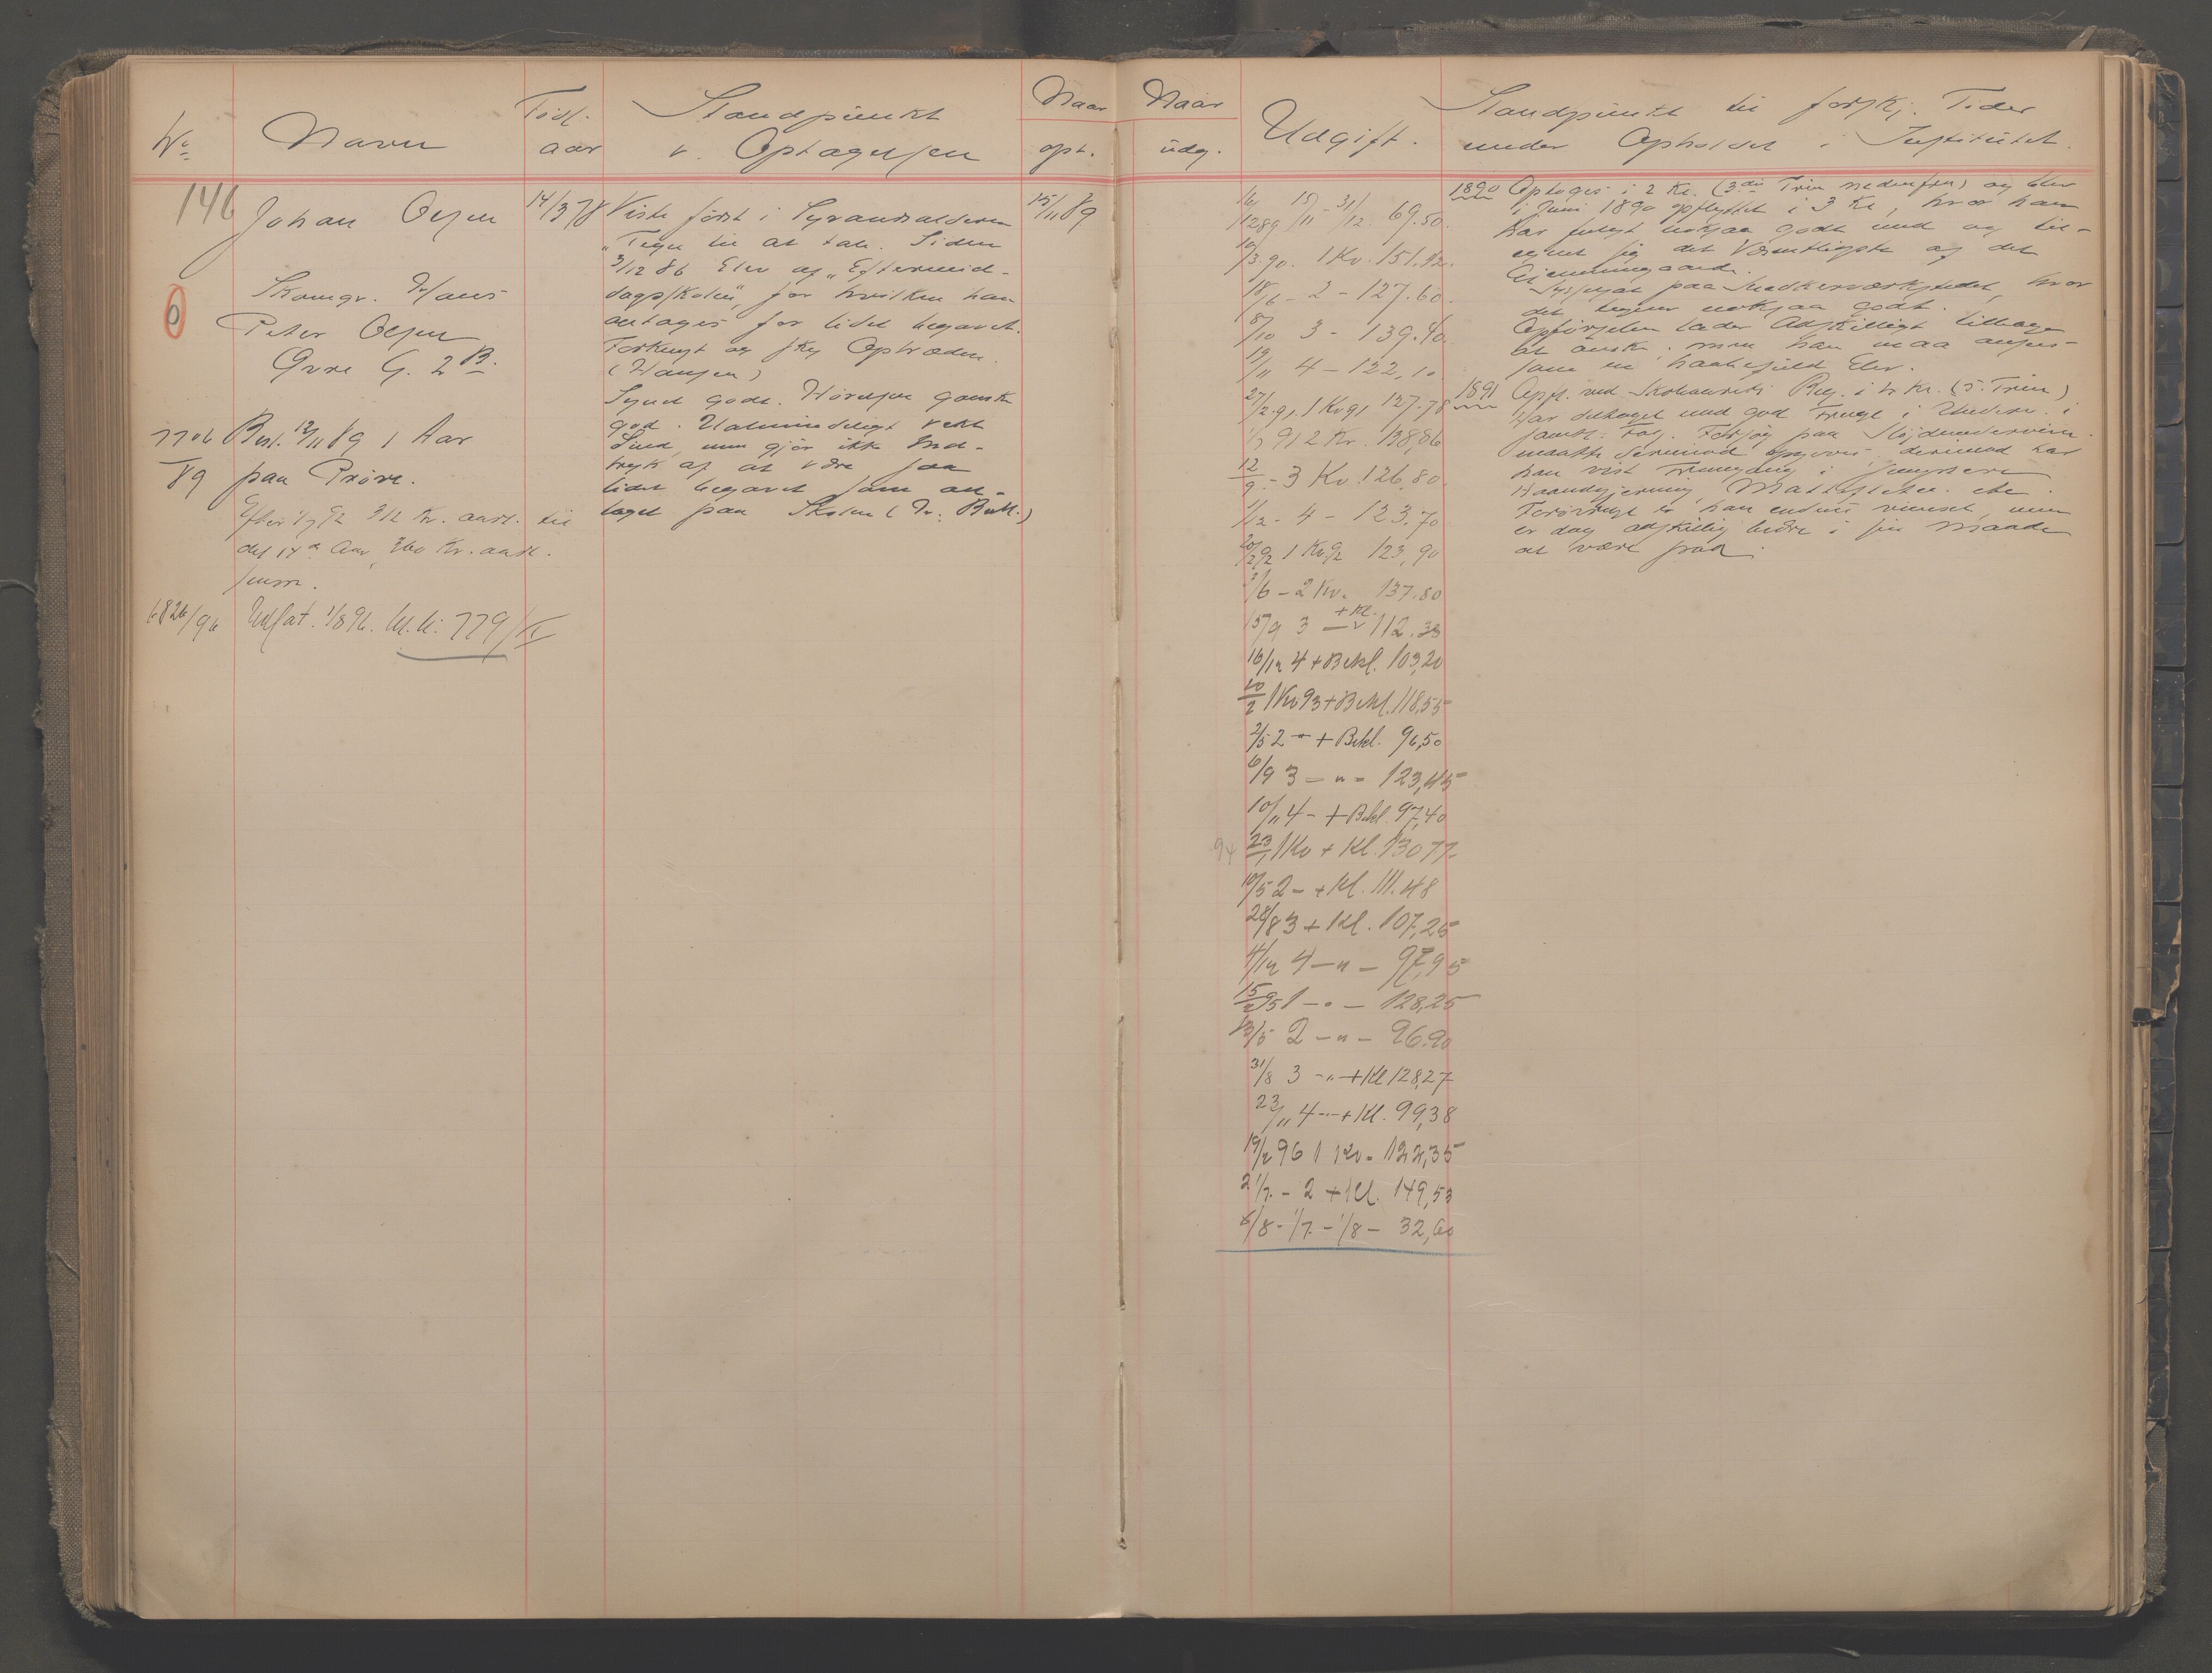 No
Navn
Født
aar
Standpunkt
v. Optagelsen
Naar
opt.
146
Johan Olsen
14/3 78
15/11 89
Viste først i Syvaarsalderen
"Tegn til at tale. Siden
3/12 86 Elev af "Eftermid-
dagsskolen", for hvilken han
antages for lidet begavet.
Forknyt og sky Optræden.
(Hansen)
Synet godt. Hørelsen ganske
god. Ualmindeligt
men gjør ikke Ind-
tryk af at være saa
lidet begavet som an-
taget paa Skolen (Dr. )
6
Skomgr. Hans
Peter Olsen
Øvre G. 2 B.
7706
/89
Besl. 12/11 89 1 Aar
paa Prøve.
Efter 1/7 92 312 Kr. aarl. til
det 14de Aar, 360 Kr. aarl.
senere.
6826/96
Udsat. 1/8 96. 779/
Naar
udg.
Udgift.
Standpunkt til forskj. Tider
under Opholdet i Institutet.
16/12 89 15/11 - 31/12 69.50.
10/3 90. 1 Kv. 151.
18/6 - 2 - 127.60.
8/10 3 - 139.40.
19/11 4 - 122,10
27/2 91. 1 Kv 91 127.78
91 2 Kv. 138,86
12/9 - 3 Kv. 126.80
1/12 - 4 - 123.70
20/2 92 1 Kv. 92 123,90
3/6 - 2 Kv. 137.80
15/9 3 - + Kl. 112.33
16/12 4 + Bekl. 103,20
20/2 1 Kv 93 + Bekl. 118,55
2/5 2 " + Bekl. 96,50
6/9 3 - " - 123,45
10/11 4 - + Bekl. 97,40
94 23/1 1 Kv + Kl. 130 77
19/5 2 - + Kl. 111.48
28/8 3 + Kl. 107,25
4/12 4 - " - 97,95
15/2 95 1 - " - 128,25
13/5 2 - " - 96.90
31/8 3 - " + Kl 128,27
23/11 4 - " + Kl. 99,38
19/2 96 1 Kv. 122,35
21/7. - 2 + Kl. 149,53
6/8 - 1/7. - 1/8 - 32,60
1890 Optoges i 2 Kl. (3die Trin nedenfra) og blev
i Juni 1890 opflyttet i 3 Kl, hvor han
har fulgt noksaa godt med og til-
egnet sig det Væsentligste af det
Gjennemgaaede.
Sysselsat paa Snedkerværkstedet, hvor
det begner noksaa godt.
Opførselen lader Adskilligt tilbage
at ønske, men han maa ansees
som en haabefuld Elev.
1891 Opfl. ved Skoleaarets Beg. i 4 Kl. (5. Trin)
Har deltaget med god Frugt i Underv. i
samtl. Fag. Forsøg paa Sløjdunderv.
maatte derimod opgives, derimod har
han vist Fremgang i
Haandgjerning, etc.
han endnu men
er dog adskillig bedre i sin Maade
at være paa.